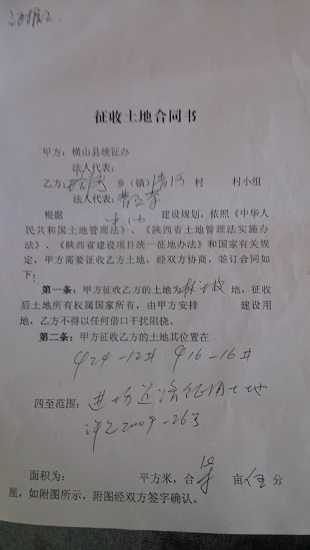 征收土地合同书
甲方：横山县统征办
法人代表：
乙方： 乡（镇） 村 村小组
法人代表：
根据 建设规划，依照《中华人
民共和国土地管理法》、《陕西省土地管理法实施办
法》、《陕西省建设项目统一征地办法》和国家有关规
定，甲方需要征收乙方土地，经双方协商，签订合同如
下：
第一条：甲方征收乙方的土地为 地，征收
后土地所有权属国家所有，由甲方安排 建设用
地，乙方不得以任何借口干扰阻挠。
第二条：甲方征收乙方的土地其位置在
φ24-12井 φ16-16井
四至范围：进场道路征用土地
2009-26号
面积为： 平方米，合 亩 分
厘，如附图所示，附图经双方签字确认。